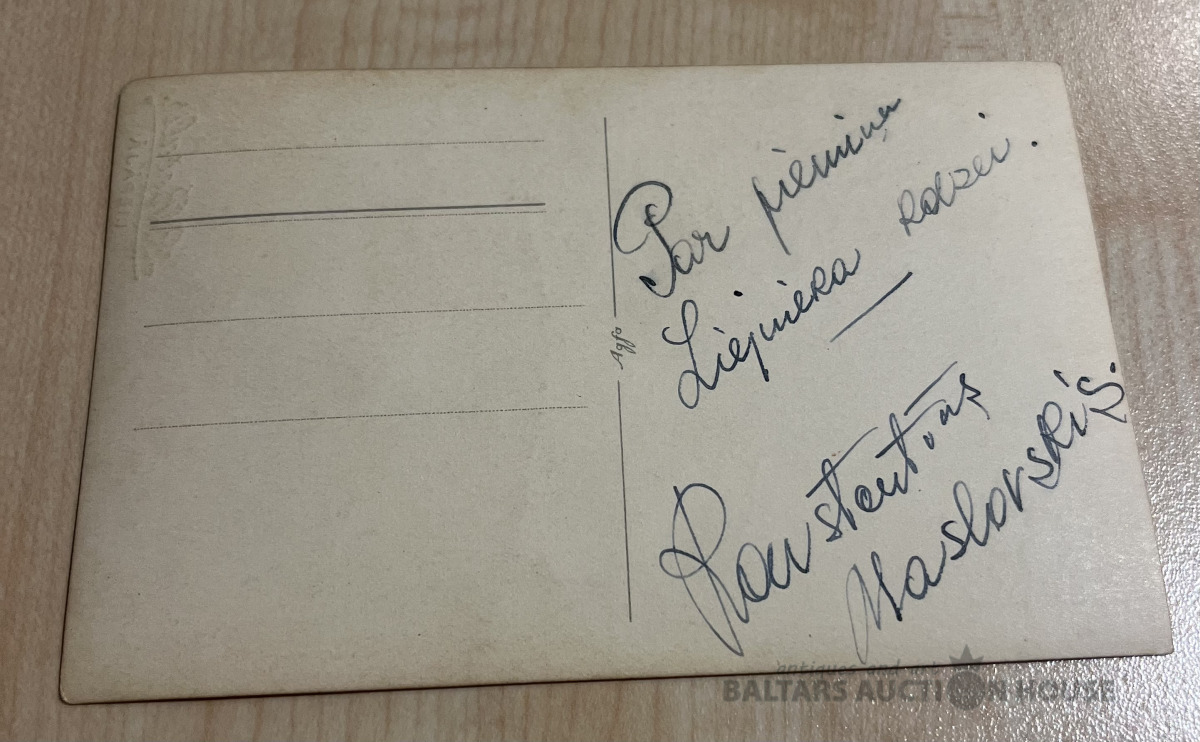 Par piemiņu
Liepniera radzei.
Konstantins
Maslovskis.
Agfa
BALTARS AUCTION HOUSE